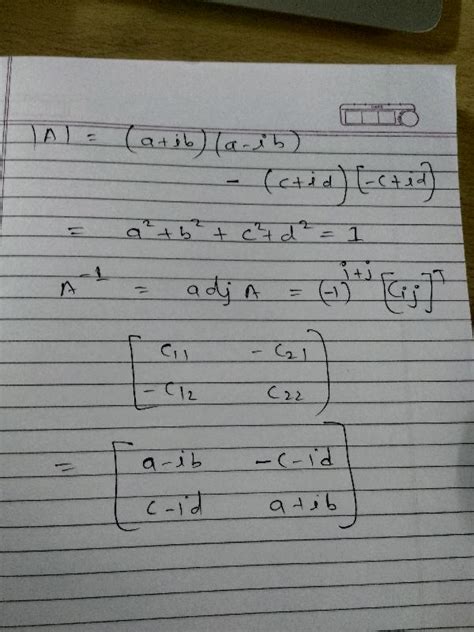 |A| = (a+ib)(a-ib)
- (c+id)[-c+id)
= a²+b²+c²+d² = 1
A⁻¹ = adj A = (-1)^{j+j} [Cij]^T
[C11 -C21
-C12 C22]
= [a-ib -c-id
c-id a+ib]